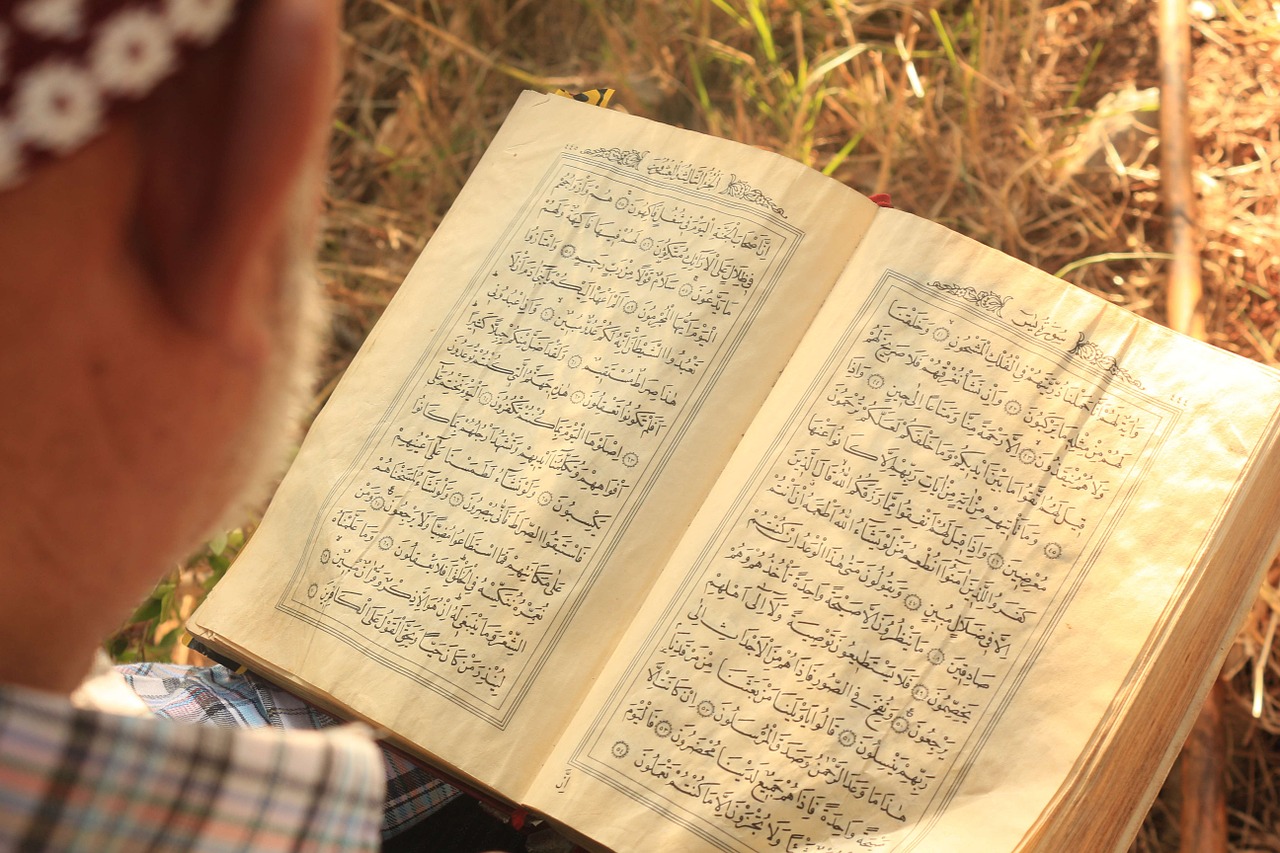 ٤٤٤
سورة يس
وَآيَةٌ لَهُمْ أَنَّا حَمَلْنَا ذُرِّيَّتَهُمْ فِي الْفُلْكِ الْمَشْحُونِ ٤١ وَخَلَقْنَا
لَهُمْ مِنْ مِثْلِهِ مَا يَرْكَبُونَ ٤٢ وَإِنْ نَشَأْ نُغْرِقْهُمْ فَلَا صَرِيخَ لَهُمْ
وَلَا هُمْ يُنْقَذُونَ ٤٣ إِلَّا رَحْمَةً مِنَّا وَمَتَاعًا إِلَى حِينٍ ٤٤ وَإِذَا
قِيلَ لَهُمُ اتَّقُوا مَا بَيْنَ أَيْدِيكُمْ وَمَا خَلْفَكُمْ لَعَلَّكُمْ تُرْحَمُونَ
٤٥ وَمَا تَأْتِيهِمْ مِنْ آيَةٍ مِنْ آيَاتِ رَبِّهِمْ إِلَّا كَانُوا عَنْهَا
مُعْرِضِينَ ٤٦ وَإِذَا قِيلَ لَهُمْ أَنْفِقُوا مِمَّا رَزَقَكُمُ اللَّهُ قَالَ الَّذِينَ
كَفَرُوا لِلَّذِينَ آمَنُوا أَنُطْعِمُ مَنْ لَوْ يَشَاءُ اللَّهُ أَطْعَمَهُ إِنْ أَنْتُمْ
إِلَّا فِي ضَلَالٍ مُبِينٍ ٤٧ وَيَقُولُونَ مَتَى هَذَا الْوَعْدُ إِنْ كُنْتُمْ
صَادِقِينَ ٤٨ مَا يَنْظُرُونَ إِلَّا صَيْحَةً وَاحِدَةً تَأْخُذُهُمْ وَهُمْ
يَخِصِّمُونَ ٤٩ فَلَا يَسْتَطِيعُونَ تَوْصِيَةً وَلَا إِلَى أَهْلِهِمْ
يَرْجِعُونَ ٥٠ وَنُفِخَ فِي الصُّورِ فَإِذَا هُمْ مِنَ الْأَجْدَاثِ إِلَى
رَبِّهِمْ يَنْسِلُونَ ٥١ قَالُوا يَا وَيْلَنَا مَنْ بَعَثَنَا مِنْ مَرْقَدِنَا
هَذَا مَا وَعَدَ الرَّحْمَنُ وَصَدَقَ الْمُرْسَلُونَ ٥٢ إِنْ كَانَتْ إِلَّا
صَيْحَةً وَاحِدَةً فَإِذَا هُمْ جَمِيعٌ لَدَيْنَا مُحْضَرُونَ ٥٣ فَالْيَوْمَ
شَيْئًا وَلَا تُجْزَوْنَ إِلَّا مَا كُنْتُمْ تَعْمَلُونَ ٥٤
إِنَّ
٤٤٥
الجزء الثالث والعشرون
إِنَّ أَصْحَابَ الْجَنَّةِ الْيَوْمَ فِي شُغُلٍ فَاكِهُونَ ٥٥ هُمْ وَأَزْوَاجُهُمْ
فِي ظِلَالٍ عَلَى الْأَرَائِكِ مُتَّكِئُونَ ٥٦ لَهُمْ فِيهَا فَاكِهَةٌ وَلَهُمْ
مَا يَدَّعُونَ ٥٧ سَلَامٌ قَوْلًا مِنْ رَبٍّ رَحِيمٍ ٥٨ وَامْتَازُوا
الْيَوْمَ أَيُّهَا الْمُجْرِمُونَ ٥٩ أَلَمْ أَعْهَدْ إِلَيْكُمْ يَا بَنِي آدَمَ أَنْ لَا
تَعْبُدُوا الشَّيْطَانَ إِنَّهُ لَكُمْ عَدُوٌّ مُبِينٌ ٦٠ وَأَنِ اعْبُدُونِي
هَذَا صِرَاطٌ مُسْتَقِيمٌ ٦١ وَلَقَدْ أَضَلَّ مِنْكُمْ جِبِلًّا كَثِيرًا
أَفَلَمْ تَكُونُوا تَعْقِلُونَ ٦٢ هَذِهِ جَهَنَّمُ الَّتِي كُنْتُمْ تُوعَدُونَ
٦٣ اصْلَوْهَا الْيَوْمَ بِمَا كُنْتُمْ تَكْفُرُونَ ٦٤ الْيَوْمَ نَخْتِمُ عَلَى
أَفْوَاهِهِمْ وَتُكَلِّمُنَا أَيْدِيهِمْ وَتَشْهَدُ أَرْجُلُهُمْ بِمَا كَانُوا
يَكْسِبُونَ ٦٥ وَلَوْ نَشَاءُ لَطَمَسْنَا عَلَى أَعْيُنِهِمْ
فَاسْتَبَقُوا الصِّرَاطَ فَأَنَّى يُبْصِرُونَ ٦٦ وَلَوْ نَشَاءُ لَمَسَخْنَاهُمْ
عَلَى مَكَانَتِهِمْ فَمَا اسْتَطَاعُوا مُضِيًّا وَلَا يَرْجِعُونَ ٦٧ وَمَنْ
نُعَمِّرْهُ نُنَكِّسْهُ فِي الْخَلْقِ أَفَلَا يَعْقِلُونَ ٦٨ وَمَا عَلَّمْنَاهُ
الشِّعْرَ وَمَا يَنْبَغِي لَهُ إِنْ هُوَ إِلَّا ذِكْرٌ وَقُرْآنٌ مُبِينٌ ٦٩
لِيُنْذِرَ مَنْ كَانَ حَيًّا وَيَحِقَّ الْقَوْلُ عَلَى الْكَافِرِينَ ٧٠